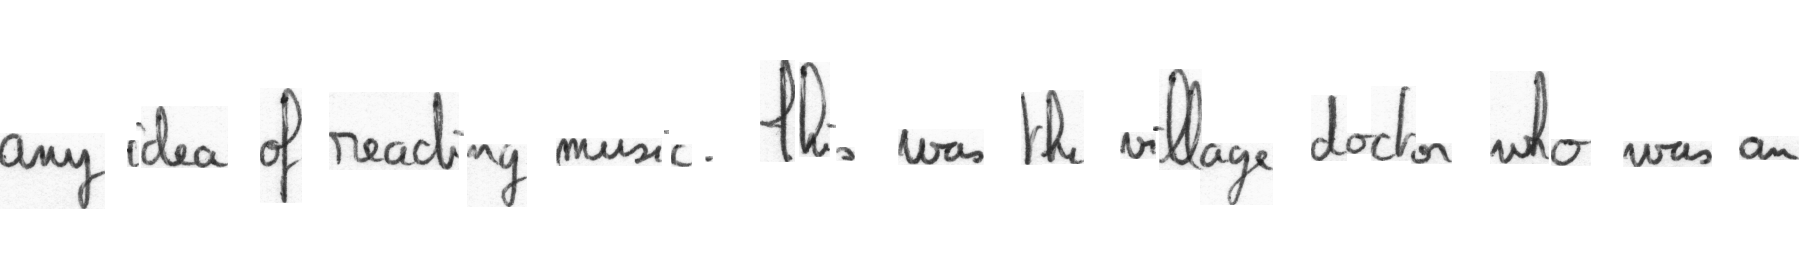 any idea of reading music. This was the village doctor who was an